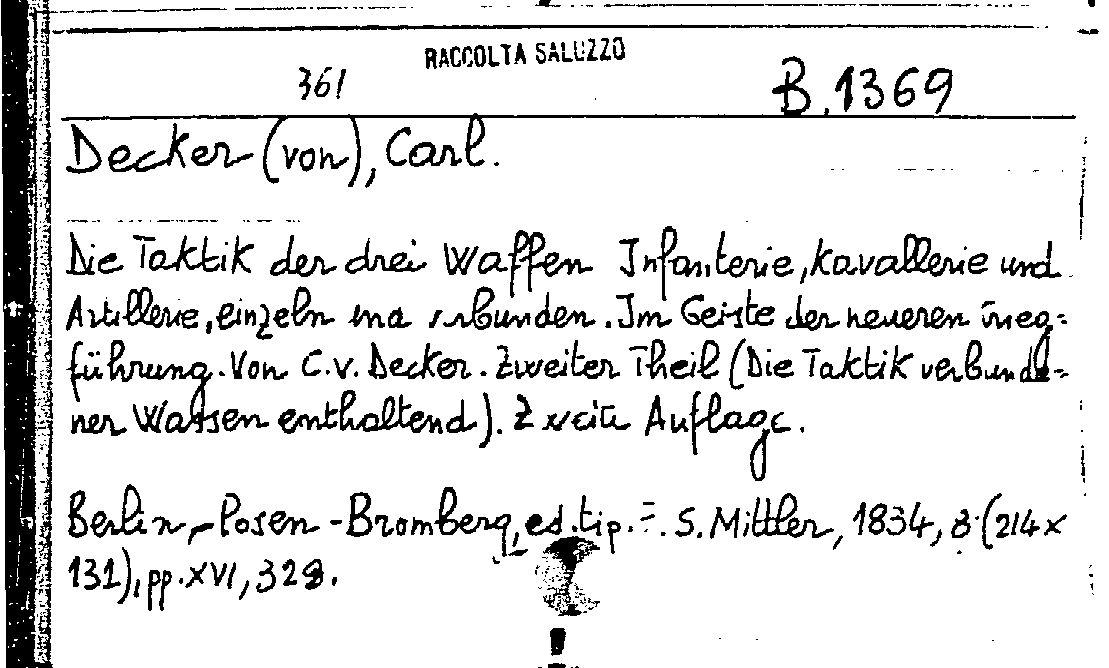 RACCOLTA SALUZZO
361 B.1369
Decker (von), Carl.
Die Taktik der drei Waffen Infanterie, Kavallerie und
Artillerie, einzeln und verbunden. Im Geiste der neueren Krieg=
führung. Von C.v. Decker. Zweiter Theil (Die Taktik verbunde=
ner Waffen enthaltend). Zweite Auflage.
Berlin-Posen-Bromberg, ed. tip. E. S. Mittler, 1834, 8° (214 x
131), pp. XVI, 328.